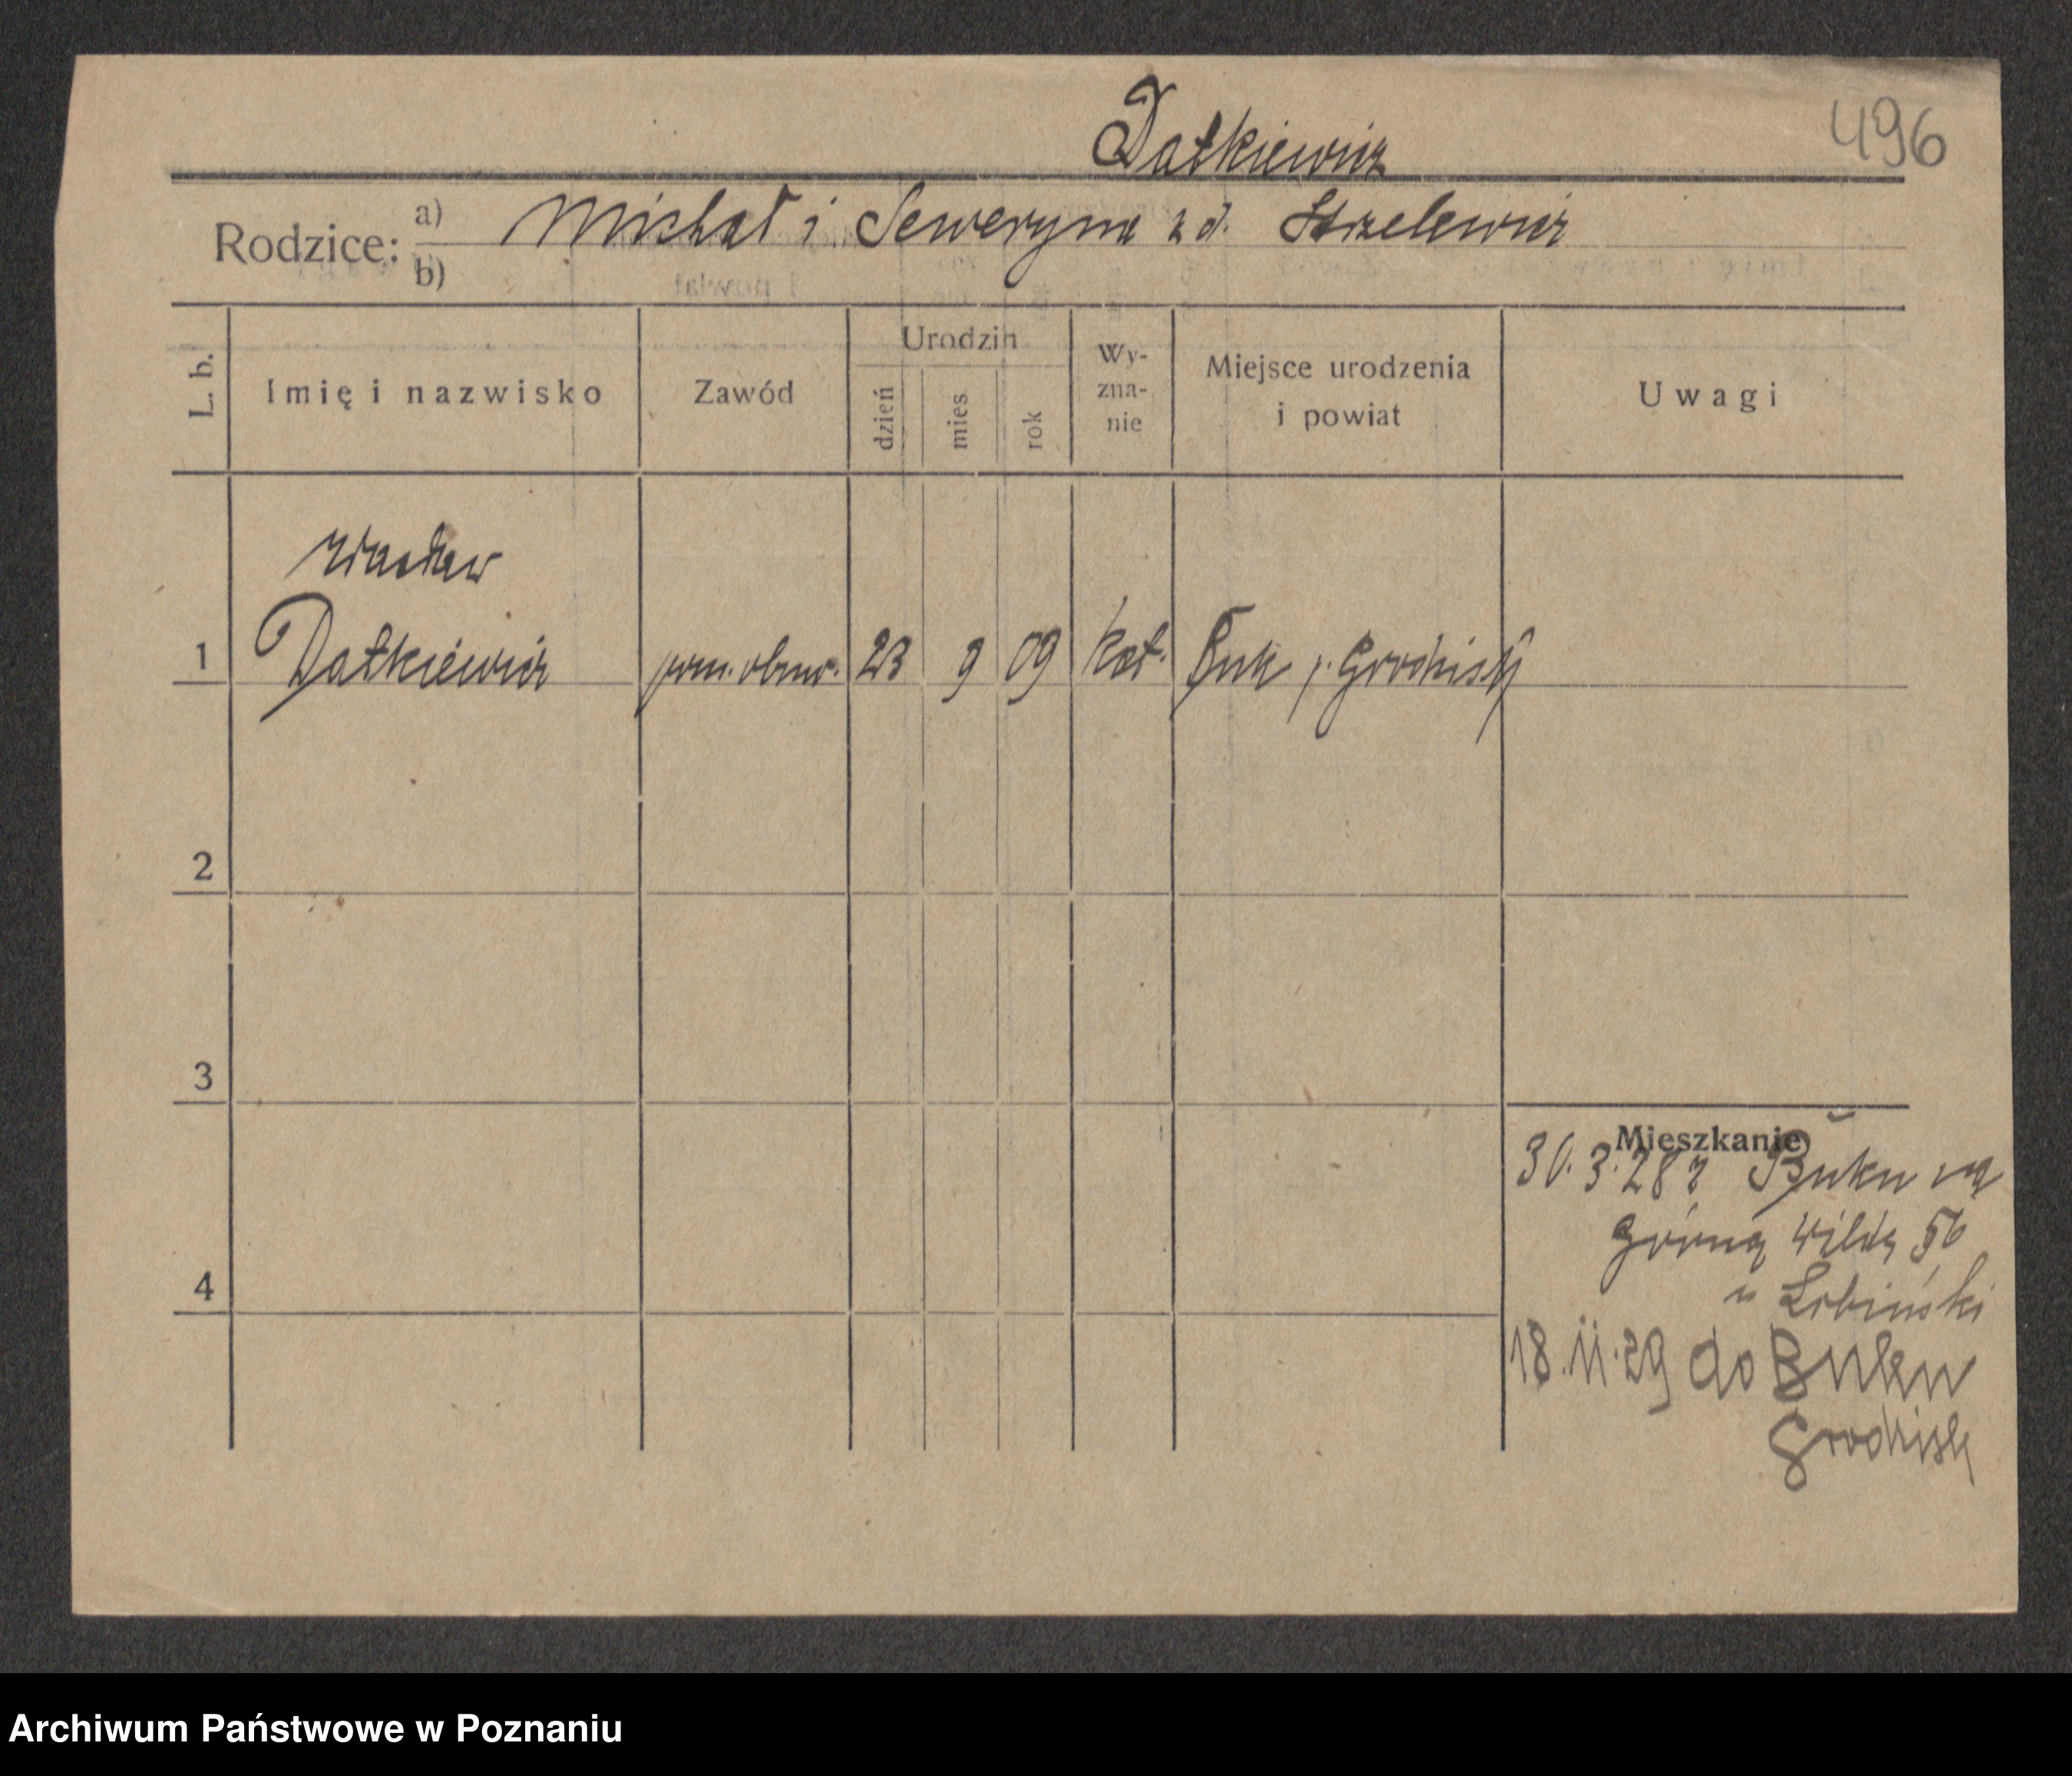 Datkiewicz
496
Rodzice: a) Michał i Seweryna z d. Strzelewicz
b)
L. b.
Imię i nazwisko
Zawód
Urodzin
dzień
mies
rok
Wy-
zna-
nie
Miejsce urodzenia
i powiat
Uwagi
Wacław
1 Datkiewicz 23 9 09 kat. Buk p. Grodzisk
2
3
4
Mieszkanie
30.3.28 z Buku na
Górną Wildę 56
u Lobiński
18.11.29 do Buku
Grodzisk
Archiwum Państwowe w Poznaniu